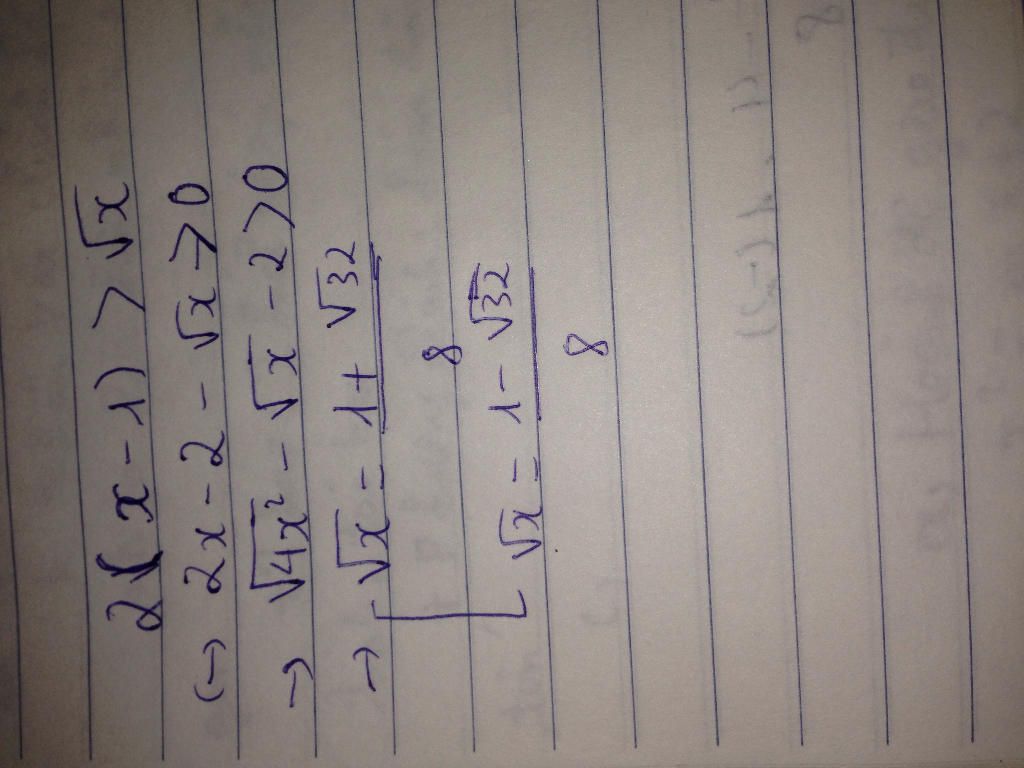 2(x-1) > √x
(→ 2x - 2 - √x > 0
→ √4x² - √x - 2 > 0
→ [ √x = 1 + √32
8
√x = 1 - √32
8